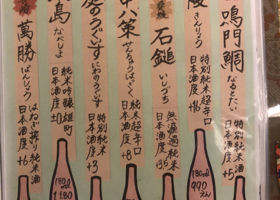 鳴門鯛
なるとたい
特別純米酒
日本酒度+5
180ml
990えん
陵
きんりょう
特別純米超辛口
日本酒度+6
石鎚
いしづち
無濾過純米
日本酒度
中八策
せんちゅうはっさく
純米超辛口
日本酒度+8
庭のうぐいす
にわのうぐいす
純米酒
日本酒度+3
島
なべしま
純米吟醸雄町
日本酒度±0
180ml
萬勝
ばんしょう
はねぎ搾り純米酒
日本酒度+6